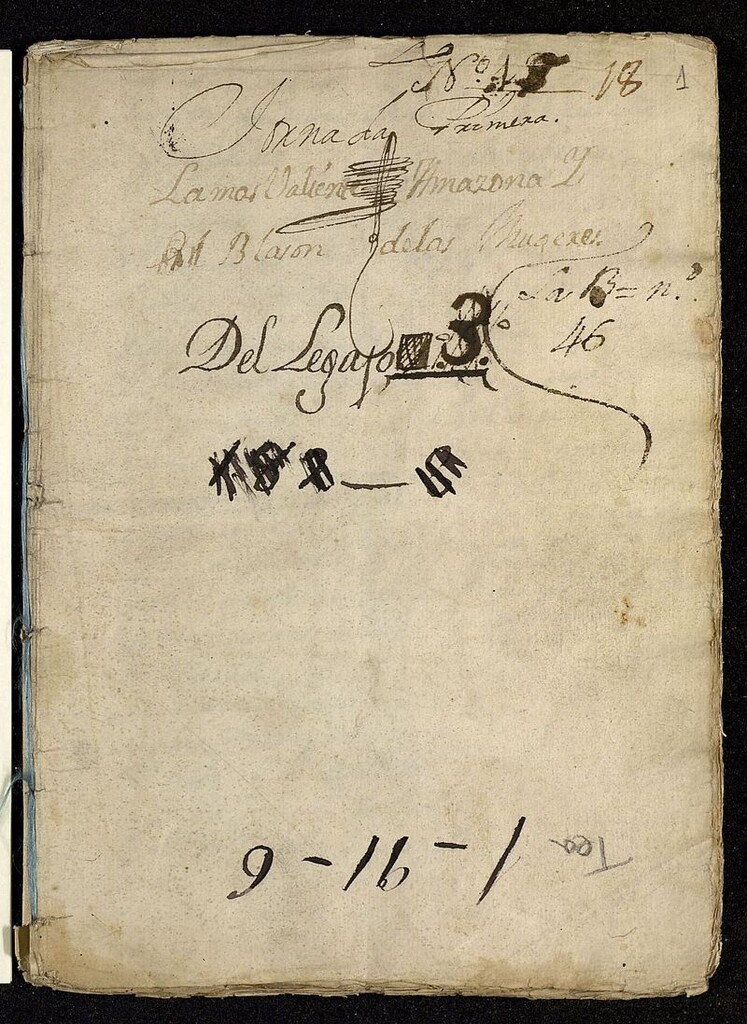 Nº. 18 1
Jornada Primera.
La mas Valiente Amazona Y
Blason de las Mugeres.
La B = n.º
46
Del Legajo 3.º
Tea 1-91-6